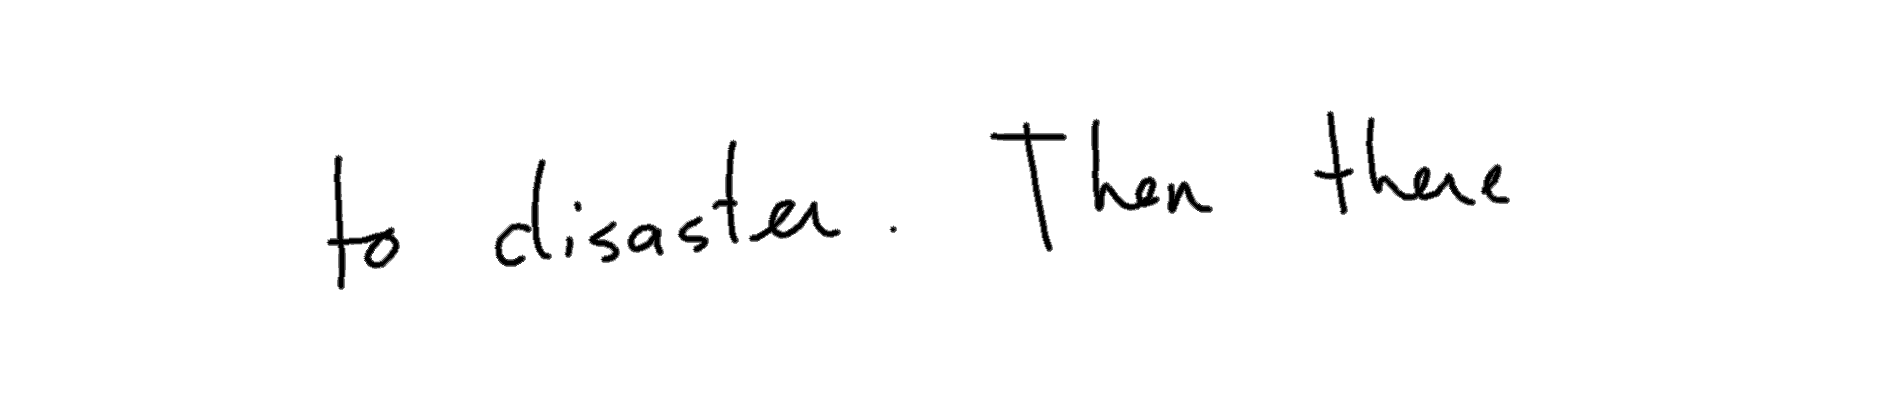 to disaster. Then there